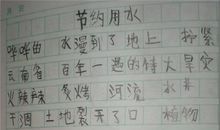 节约用水
哗哗的 水漫到了地上 拧紧
云南省 百年一遇的特大旱灾
火辣辣 炙烤 河流 水井
干涸 土地裂开了口 植物